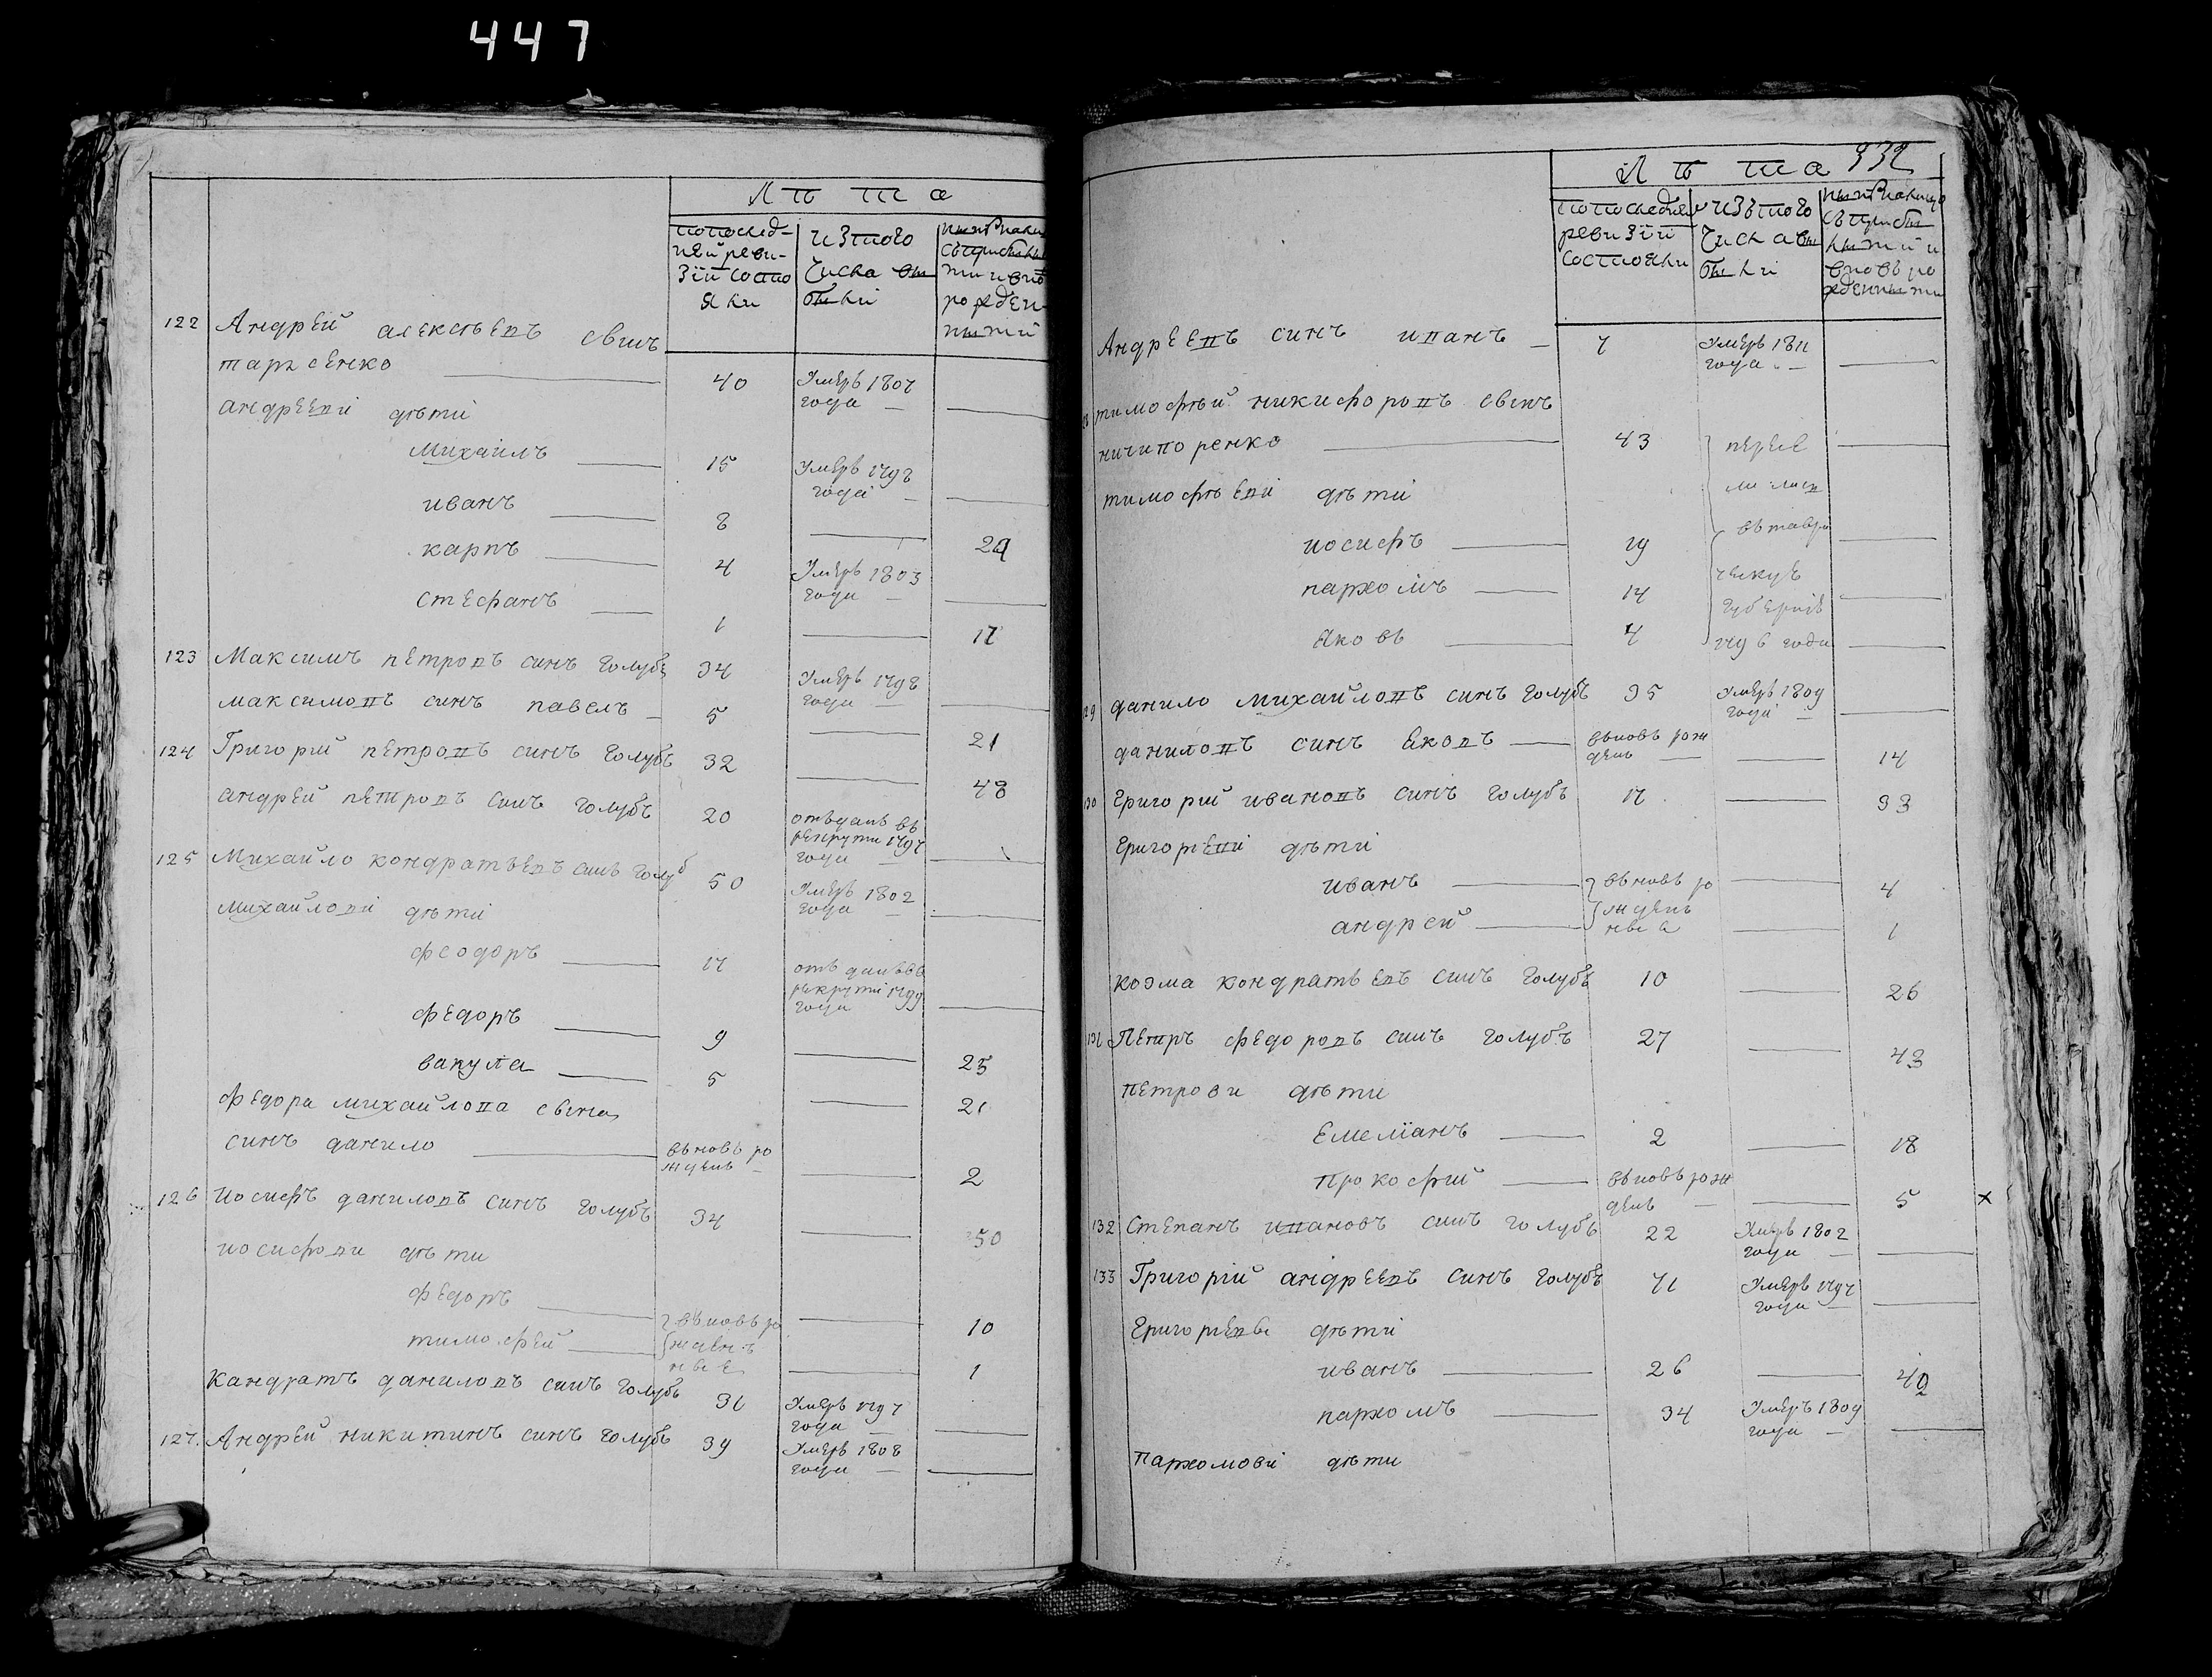 447
Лѣта
попослед-
ней реви-
зіи состо
яли
изтого
числа вы
были
рожден-
122 Андрей алексѣевъ свинъ
тарасенко 40 Умеръ 1807
года
андрееви дѣти
михаилъ 15 Умеръ 1798
года
иванъ 8 29
карпъ 4 Умеръ 1803
года
стефанъ 1 17
123 Максимъ петровъ синъ голубъ 34 Умеръ 1798
года
максимовъ синъ павелъ 5 21
124 Григорій петровъ синъ голубъ 32 48
андрей петровъ синъ голубъ 20 отъданъ въ
рекрути 1797
года
125 Михайло кондратьевъ синъ голуб 50 Умеръ 1802
года
михайлови дѣти
феодоръ 17 отъданъ въ
рекрути 1799
года
федоръ 9 25
вакула 5 21
федора михайлова свина
синъ данило вьновь ро
жденъ 2
126 иосифъ даниловъ синъ голубъ 34 50
иосифови дѣти
федоръ вьновь ро 10
тимофей жден
ные 1
кандратъ даниловъ синъ голубъ 31 Умеръ 1797
года
127. Андрей никитинъ синъ голубъ 39 Умеръ 1808
года
332
Лѣта
попоследней
ревизіи
состояли
изътого
числа вы
были
съ
вновь ро
жденными
Андреевъ синъ иванъ 7 Умеръ 1811
года
тимофѣй никифоровъ свинъ
ничипоренко 43 перес
тимофѣеви дѣти
иосифъ 19 вътаври
пархомъ 14 ческую
губерніѣ
яковъ 4 1796 года
29 данило михайловъ синъ голубъ 35 Умеръ 1809
года
даниловъ синъ яковъ вьновь рож
денъ 14
130 григорій ивановъ синъ голубъ 17 33
григорієви дѣти
иванъ вьновь ро 4
андрей жден
ные 1
козма кондратьевъ синъ голубъ 10 26
131 Петръ федоровъ синъ голубъ 27 43
петрови дѣти
Емеліанъ 2 18
прокофий вьновь рож
денъ 5 x
132 степанъ ивановъ синъ голубъ 22 Умеръ 1802
года
133 Григорій андреевъ синъ голубъ 71 Умеръ 1797
года
григорієвы дѣти
иванъ 26 42
пархомъ 34 Умеръ 1809
года
пархомові дѣти